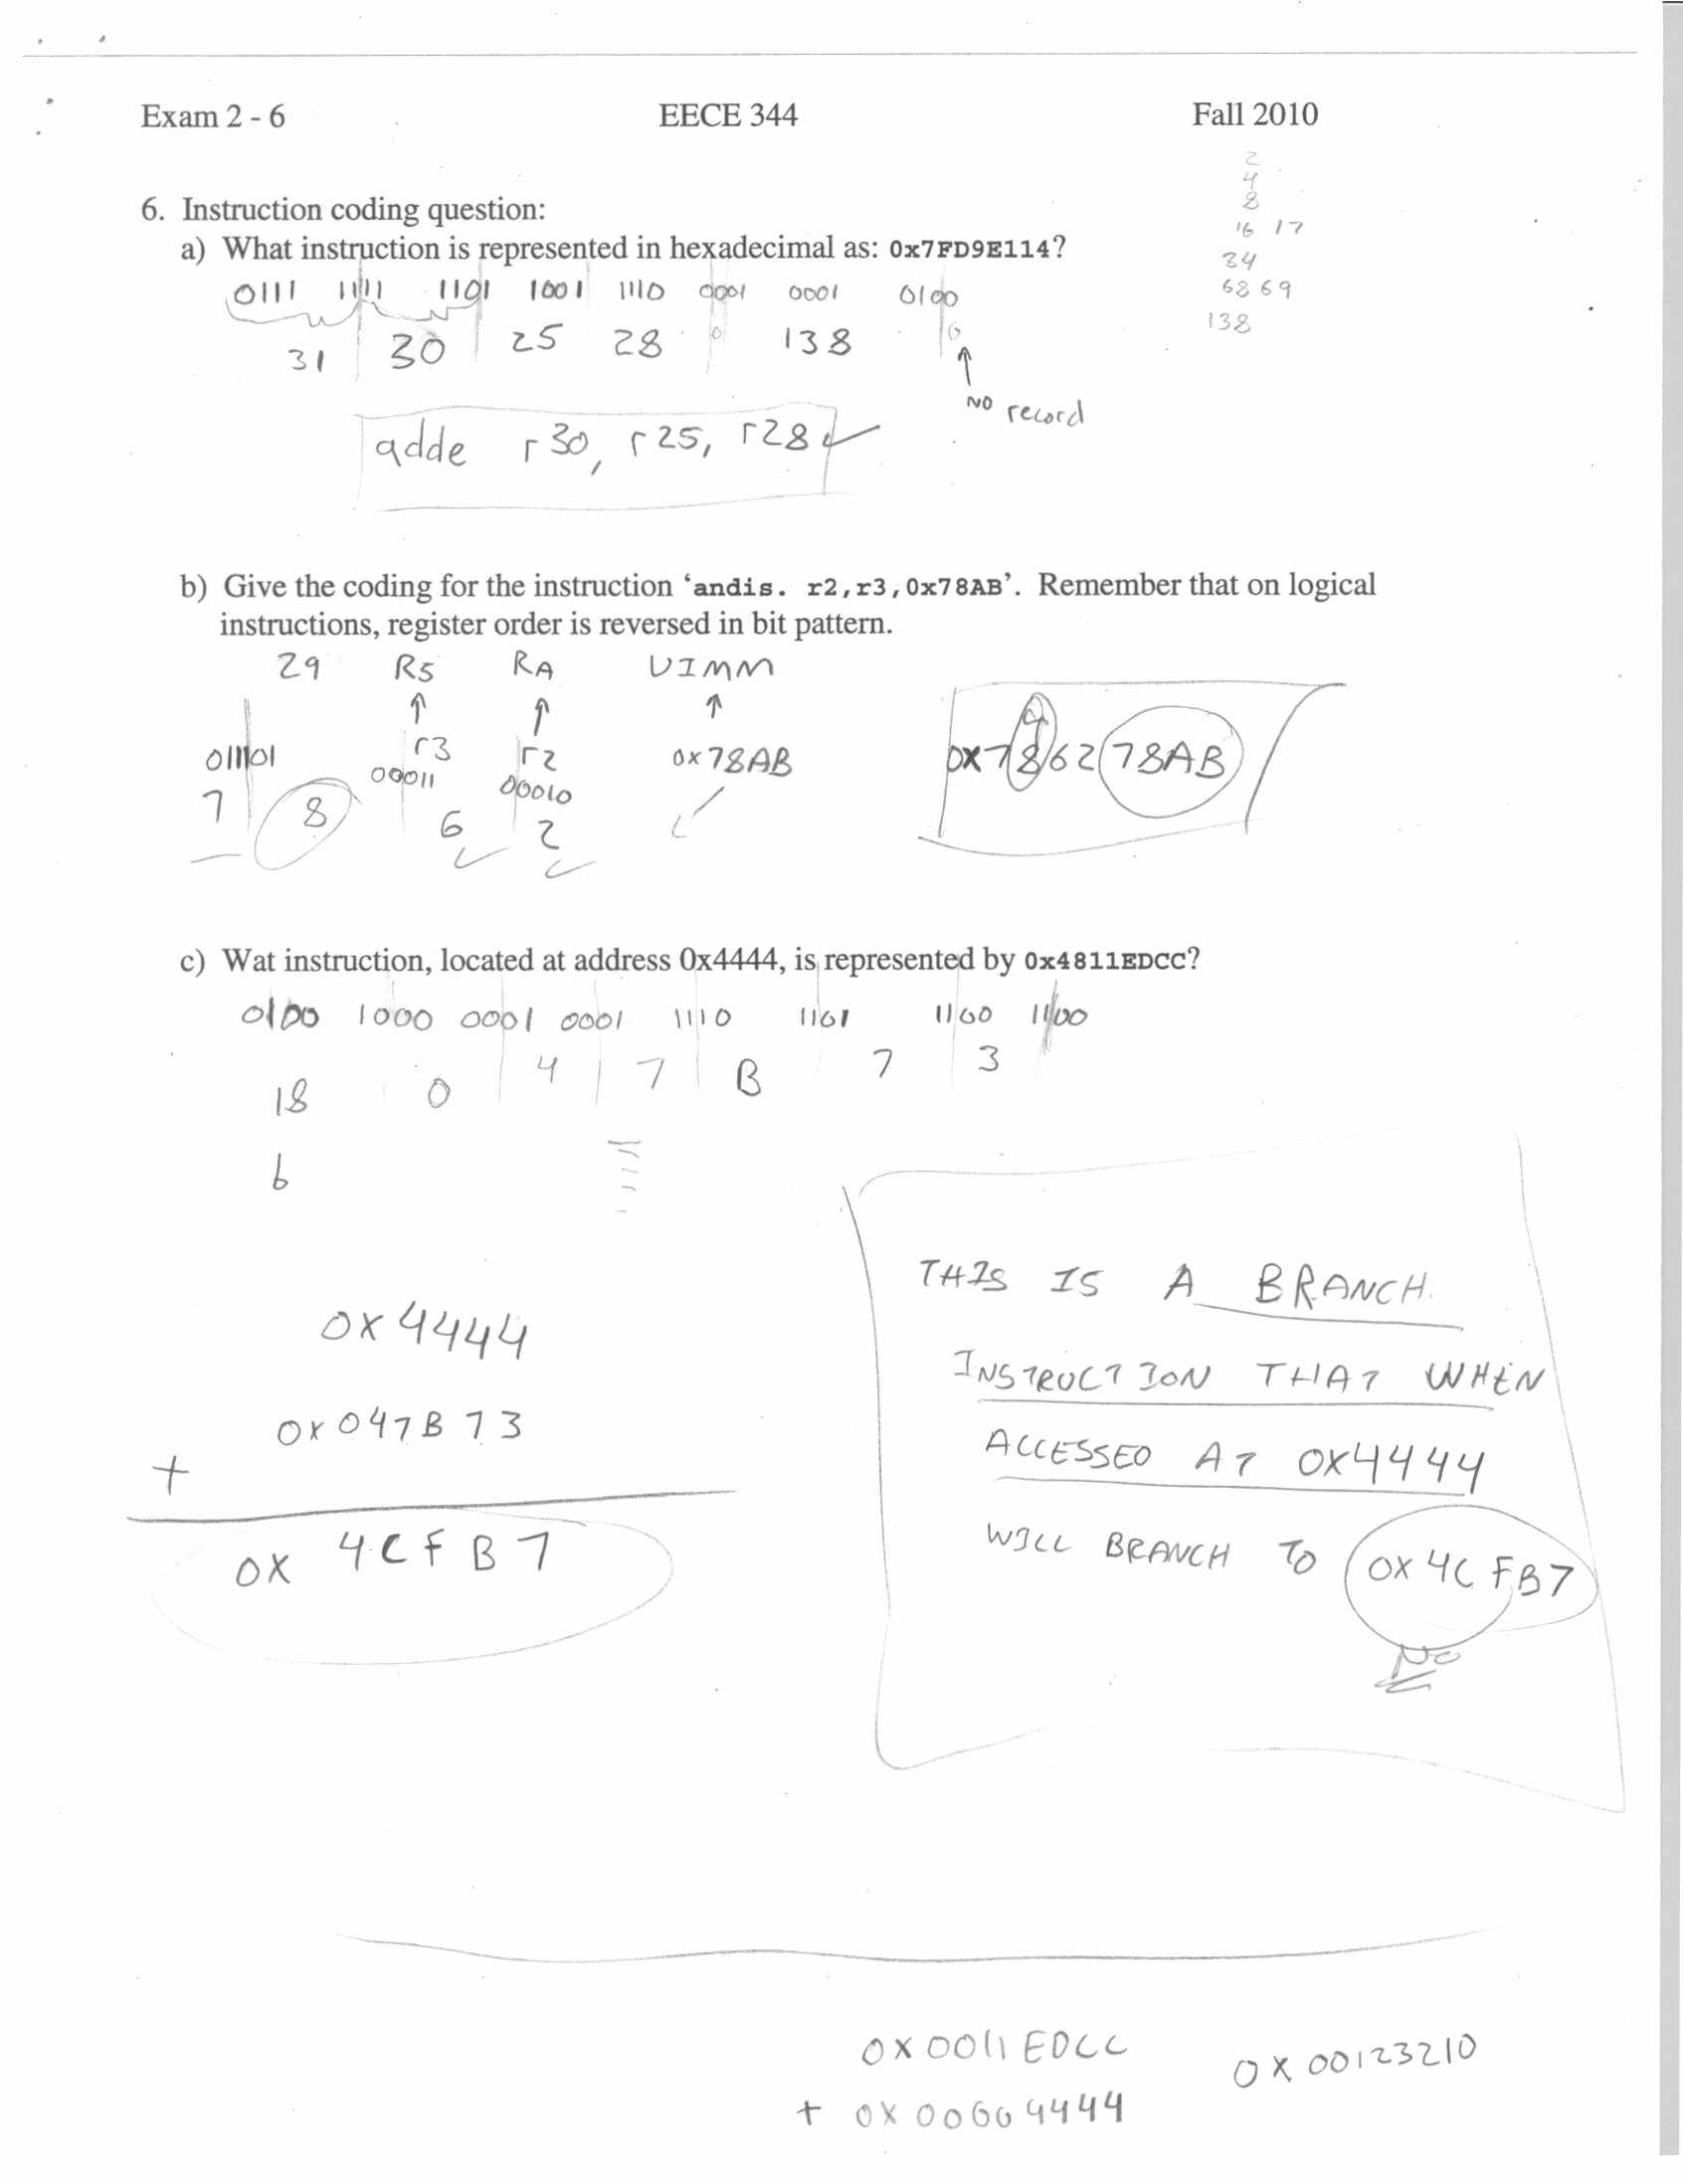 Exam 2 - 6 EECE 344 Fall 2010
2
4
8
16 17
34
68 69
138
6. Instruction coding question:
a) What instruction is represented in hexadecimal as: 0x7FD9E114?
0111 1111 1101 1001 1110 0001 0001 0100
31 30 25 28 0 138 0
NO record
adde r30, r25, r28
b) Give the coding for the instruction ‘andis. r2,r3,0x78AB’. Remember that on logical
instructions, register order is reversed in bit pattern.
29 RS RA UIMM
r3 r2 0x78AB
011101 00011 00010
7 8 6 2
0x786278AB
4
c) Wat instruction, located at address 0x4444, is represented by 0x4811EDCC?
0100 1000 0001 0001 1110 1101 1100 1100
18 0 4 7 B 7 3
b
0x4444
0x047B73
+
0x 4CFB7
THIS IS A BRANCH.
INSTRUCTION THAT WHEN
ACCESSED AT 0x4444
WILL BRANCH TO 0x4CFB7
No
0x0011EDCC
+ 0x00004444
0x00123210